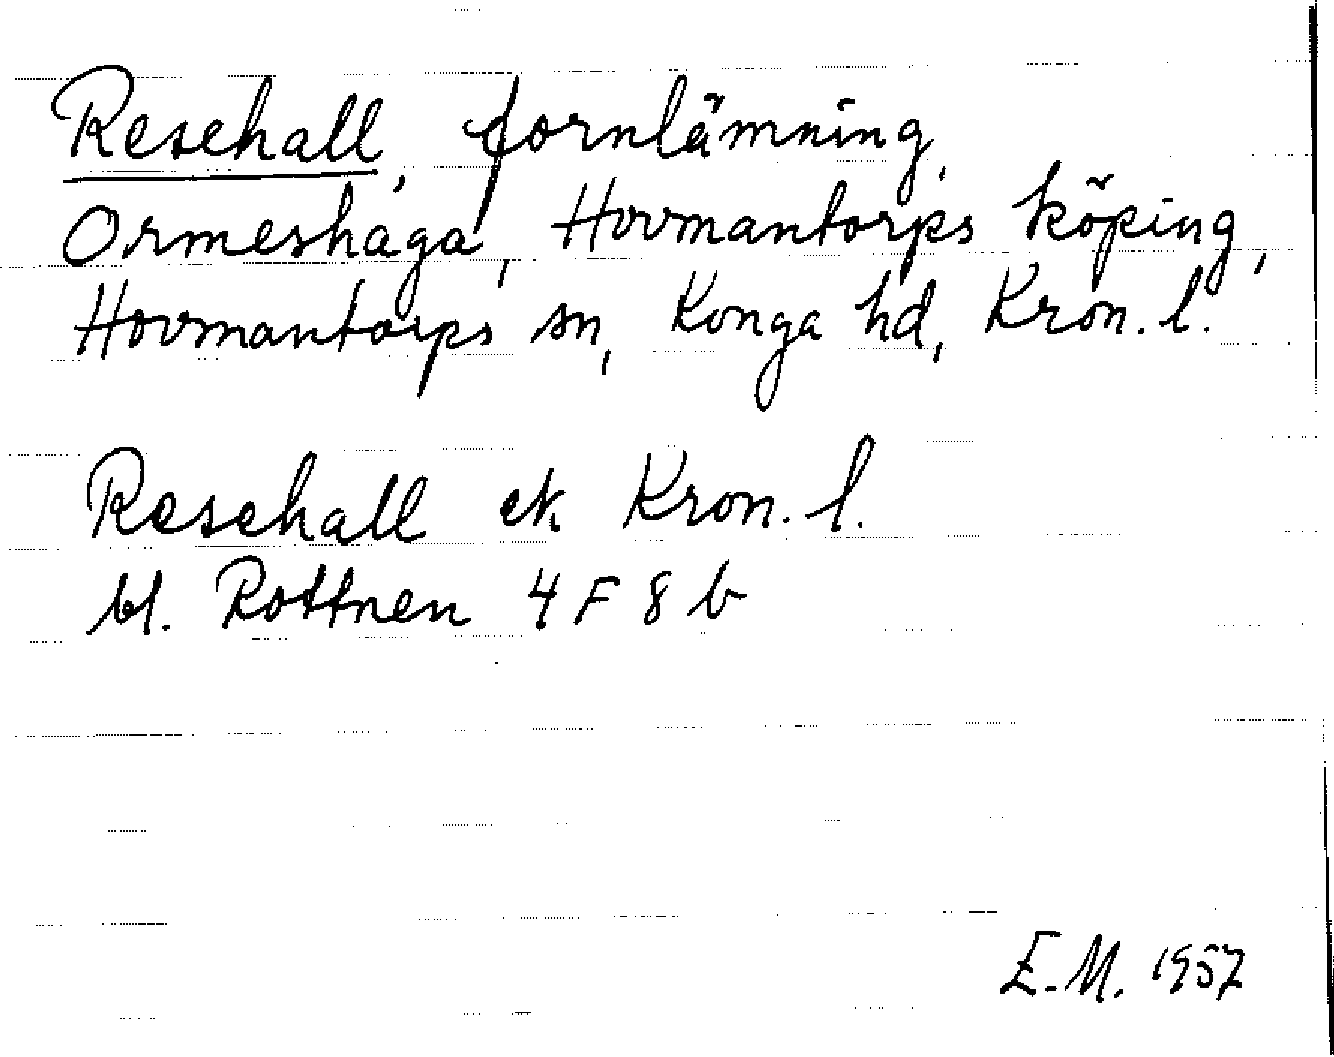 Resehall, fornlämning,
Ormeshaga, Hovmantorps köping,
Hovmantorps sn, Konga hd, Kron. l.
Resehall ek Kron. l.
bl. Rottnen 4 F 8 b
E.M. 1957